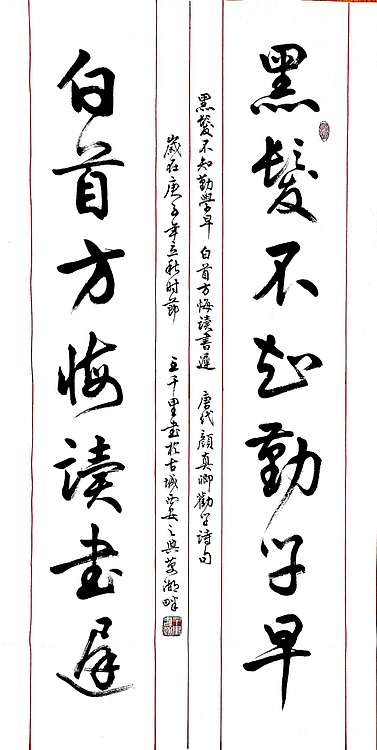 黑髮不知勤学早
黑髮不知勤學早 白首方悔讀書遲 唐代顔真卿勸学詩句
歲在庚子年立秋时節 王千里書於古城西安之興慶湖畔
白首方悔讀书遲